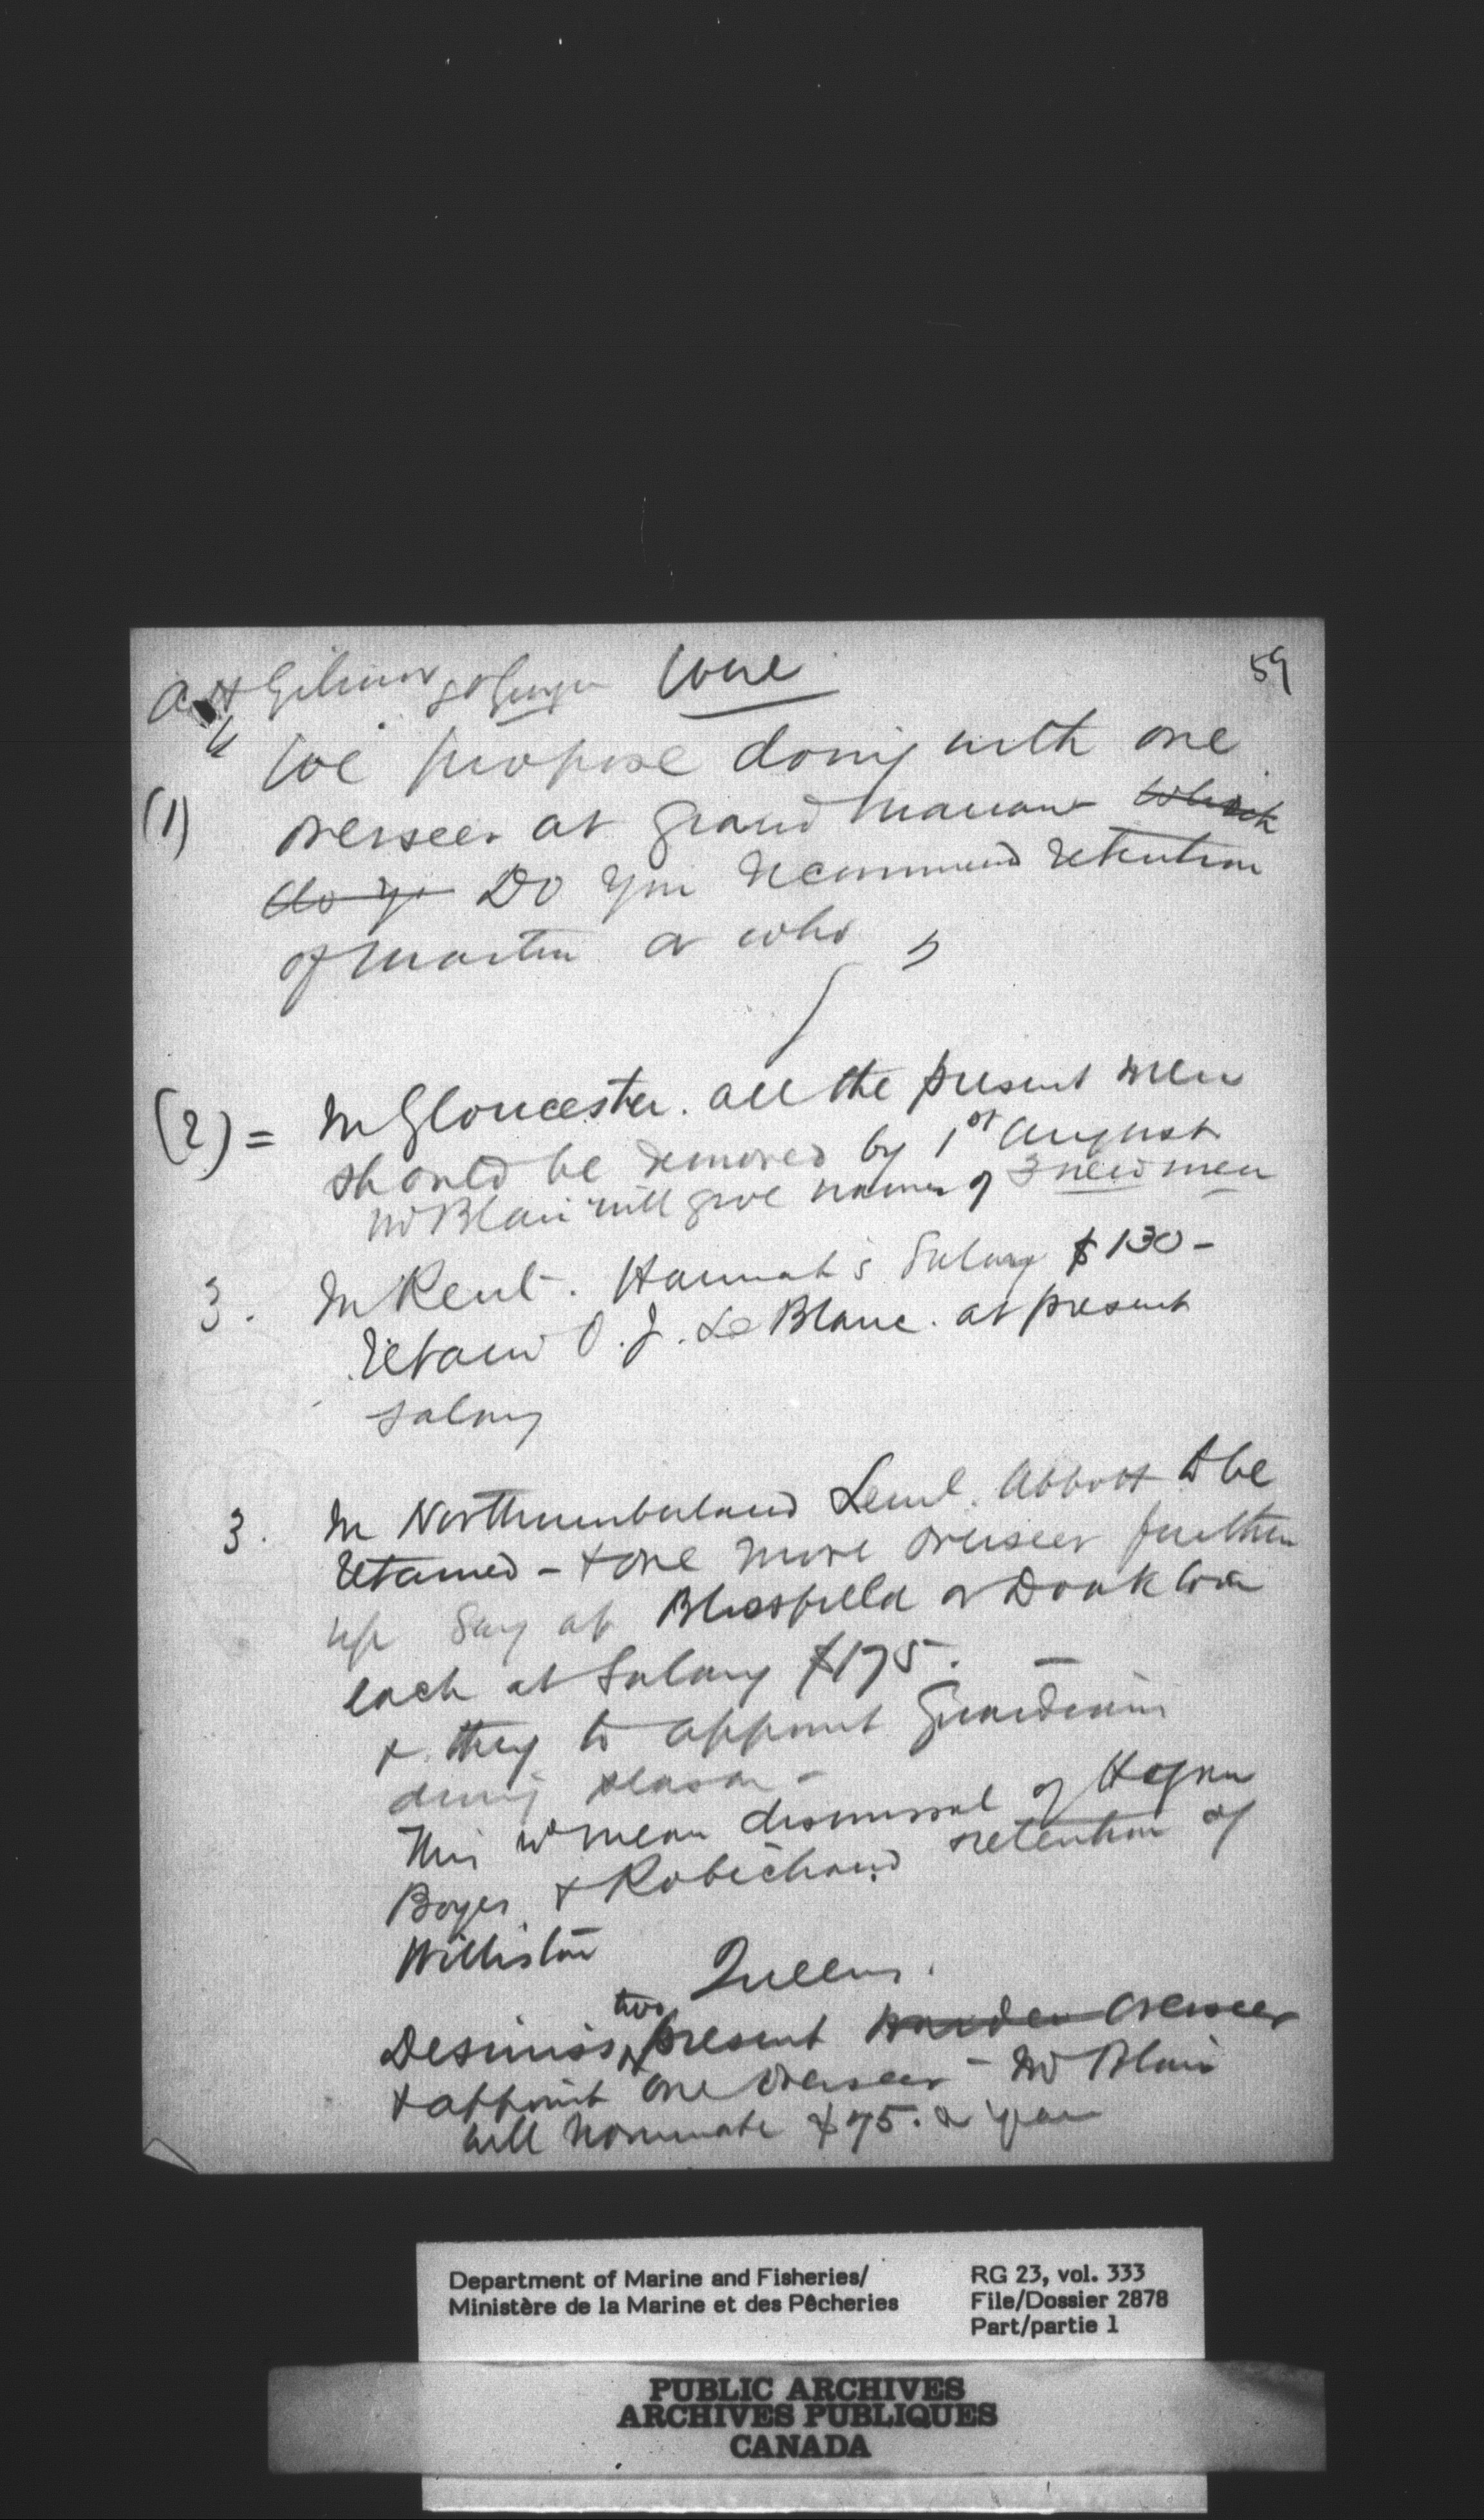 A H Gilmor St George Wire
59
We propose doing with one
(1) overseer at Grand Manan ~~which~~
~~do yo~~ Do you recommend retention
of Martin or who ?
(2) = In Gloucester. all the present men
should be removed by 1st August
Mr Blair will give names of 3 new men
3. In Kent. Hannah's Salary $130 -
Retain O. J. LeBlanc. at present
salary
3. In Northumberland Leml. Abbott to be
retained - + one more overseer further
up say at Blissfield or Doaktown
each at Salary $175. -
+ they to appoint Guardians
during season -
This wd mean dismissal of Hogan
Boyer + Robichaud retention of
Williston
Queens.
Desimiss two present ~~warden~~ overseer
+ appoint one overseer - Mr Blair
will nominate $75. a year
Department of Marine and Fisheries/
Ministère de la Marine et des Pêcheries
RG 23, vol. 333
File/Dossier 2878
Part/partie 1
PUBLIC ARCHIVES
ARCHIVES PUBLIQUES
CANADA